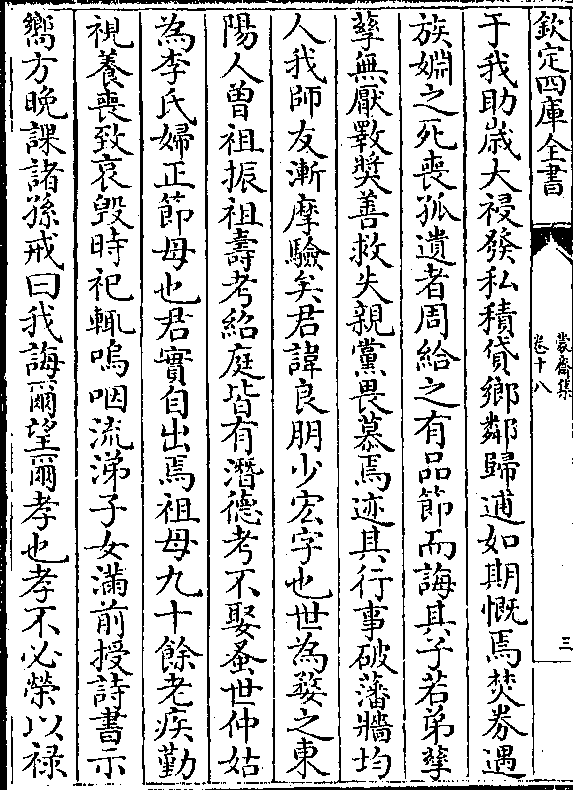 欽定四庫全書
蒙齋集
卷十八
三
于我助歳大祲發私積貸鄉鄰歸逋如期慨焉焚券遇
族婣之死喪孤遺者周給之有品節而誨其子若弟孳
孳無厭斁奬善救失親黨畏慕焉迹其行事破藩牆均
人我師友漸摩驗矣君諱良朋少宏字也世為婺之東
陽人曽祖振祖壽考紹庭皆有潛德考不娶蚤世仲姑
為李氏婦正節母也君實自出焉祖母九十餘老疾勤
視養喪致哀毀時祀輒嗚咽流涕子女滿前授詩書示
嚮方晚課諸孫戒曰我誨爾望爾孝也孝不必榮以禄